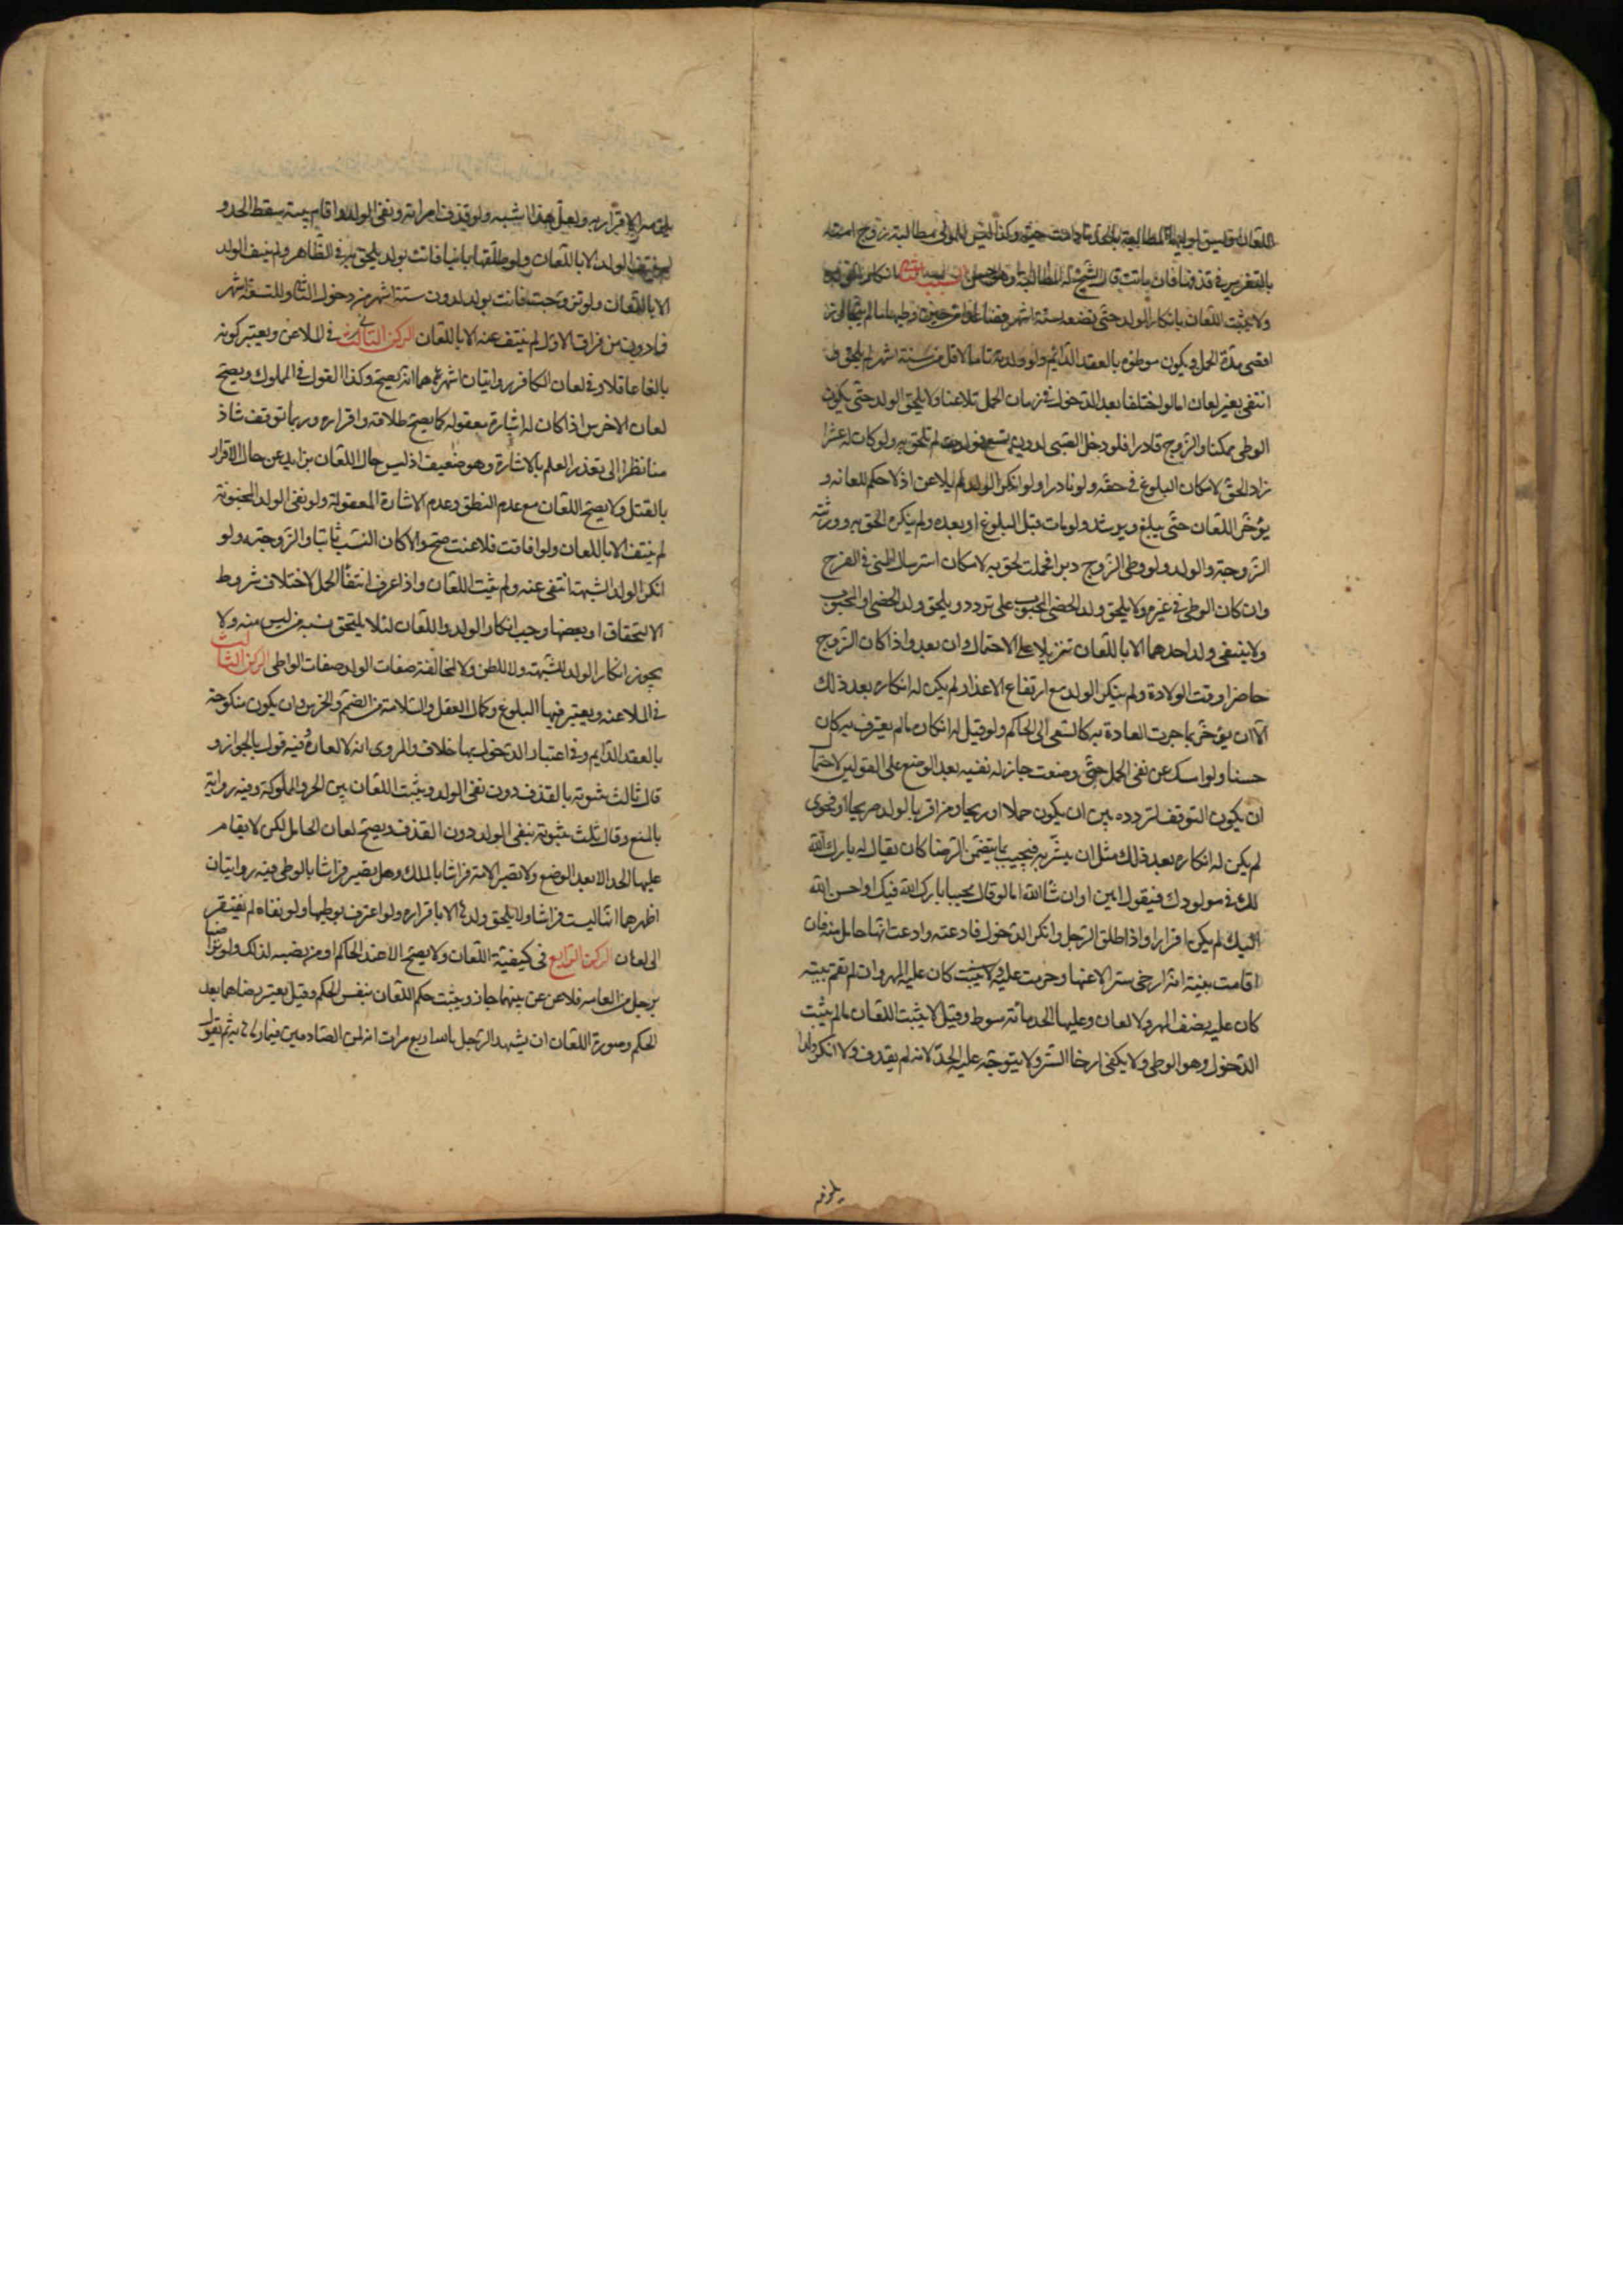 اللعان وليس لوليها المطالبة بالحد ما دامت حية وكذا ليس للمولى مطالبة زوج امته
بالتعزير في قذفها فان ماتت قال الشيخ له المطالبة وهو حسن السبب الثاني انكار الولد
ولا يثبت اللعان بانكار الولد حتى تضعه لستة اشهر فصاعدا من حين وطيها ما لم يتجاوز
اقصى مدة الحمل ويكون موطوة بالعقد الدايم ولو ولدته تاما لاقل من ستة اشهر لم يلحق و
انتفى بغير لعان اما لو اختلفا بعد الدخول في زمان الحمل تلاعنا ولا يلحق الولد حتى يكون
الوطى ممكنا والزوج قادرا فلو دخل الصبى لدون تسع فولدت لم يلحق به ولو كان له عشرا
زاد الحق لامكان البلوغ في حقه ولو نادرا ولو انكر الولد لم يلاعن اذ لا حكم للعانه و
يؤخر اللعان حتى يبلغ ويرشد ولو مات قبل البلوغ او بعده ولم ينكره الحق به وورثته
الزوجة والولد ولو وطى الزوج دبرا فحملت لحق به لامكان استرسال المنى في الفرج
وان كان الوطى في غيره ولا يلحق ولد الخصى المجبوب على تردد ويلحق ولد الخصى او المجبوب
ولا ينتفى ولد احدهما الا باللعان تنزيلا على الاحتمال وان بعد واذا كان الزوج
حاضرا وقت الولادة ولم ينكر الولد مع ارتفاع الاعذار لم يكن له انكاره بعد ذلك
الا ان يؤخر بما جرت العادة به كالسعى الى الحاكم ولو قيل له انكاره ما لم يعترف به كان
حسنا ولو امسك عن نفى الحمل حتى وضعت جاز له نفيه بعد الوضع على القولين لاحتمال
ان يكون التوقف لتردده بين ان يكون حملا او ريحا ومن اقر بالولد صريحا او فحوى
لم يكن له انكاره بعد ذلك مثل ان يبشر به فيجيب بما يتضمن الرضا كان يقال له بارك الله
لك في مولودك فيقول امين او ان شا الله اما لو قال مجيبا بارك الله فيك او احسن الله
اليك لم يكن اقرارا واذا طلق الرجل وانكر الدخول فادعته وادعت انها حامل منه فان
اقامت بينة انه ارخى سترا لاعنها وحرمت عليه ولا يثبت كان عليه المهر وان لم تقم بينة
كان عليه نصف المهر ولا لعان وعليها الحد مائة سوط وقيل لا يثبت اللعان ما لم يثبت
الدخول وهو الوطى ولا يكفى ارخا الستر ولا يتوجه عليه الحد لانه لم يقذف ولا انكر ولدا
يلزمه
يلزمه الاقرار به ولعل هذا اشبه ولو قذف امراته ونفى الولد واقام بينة سقط الحد و
لم ينتف الولد الا باللعان ولو طلقها باينا فاتت بولد يلحق به في الظاهر ولم ينتف الولد
الا باللعان ولو تزوجت فاتت بولد لدون ستة اشهر من دخول الثانى ولتسعة اشهر
فما دون من فراق الاول لم ينتف عنه الا باللعان الركن الثانى في الملاعن ويعتبر كونه
بالغا عاقلا وفي لعان الكافر روايتان اشهرهما انه يصح وكذا القول في المملوك ويصح
لعان الاخرس اذا كان له اشارة معقولة كما يصح طلاقه واقراره وربما توقف شاذ
منا نظرا الى تعذر العلم بالاشارة وهو ضعيف اذ ليس حال اللعان بزايد عن حال الاقرار
بالقتل ولا يصح اللعان مع عدم النطق وعدم الاشارة المعقولة ولو نفى الولد المجنونة
لم ينتف الا باللعان ولو افاقت فلاعنت صح والا كان النسب ثابتا والزوجية ولو
انكر الولد الشبهة انتفى عنه ولم يثبت اللعان واذا عرف انتفا الحمل لاختلاف شروط
الالتحاق او بعضها وجب انكار الولد واللعان لئلا يلتحق بنسبه من ليس منه ولا
يجوز انكار الولد للشبهة ولا للظن ولا لمخالفة صفات الولد صفات الواطى الركن الثالث
في الملاعنة ويعتبر فيها البلوغ وكمال العقل والسلامة من الصمم والخرس وان يكون منكوحة
بالعقد الدايم وفي اعتبار الدخول بها خلاف والمروى انه لا لعان وفيه قول بالجواز و
قال ثالث بثبوته بالقذف دون نفى الولد ويثبت اللعان بين الحر والمملوكة وفيه رواية
بالمنع وقال ثالث بثبوته بنفى الولد دون القذف ويصح لعان الحامل لكن لا يقام
عليها الحد الا بعد الوضع ولا تصير الامة فراشا بالملك وهل تصير فراشا بالوطى فيه روايتان
اظهرهما انها ليست فراشا ولا يلحق ولدها الا باقراره ولو اعترف بوطيها ولو نفاه لم يفتقر
الى لعان الركن الرابع في كيفية اللعان ولا يصح الا عند الحاكم او من نصبه لذلك ولو تراضيا
برجل من العامة فلاعن بينهما جاز ويثبت حكم اللعان بنفس الحكم وقيل يعتبر رضاهما بعد
الحكم وصورة اللعان ان يشهد الرجل بالله اربع مرات انه لمن الصادقين فيما رماها به ثم يقول